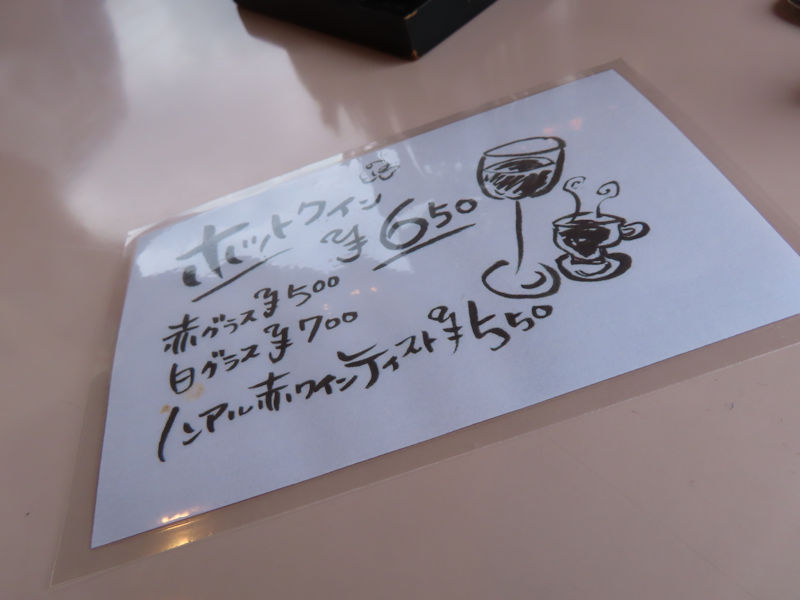 ホットワイン
¥650
赤グラス¥500
白グラス¥700
ノンアル赤ワインテイスト¥550